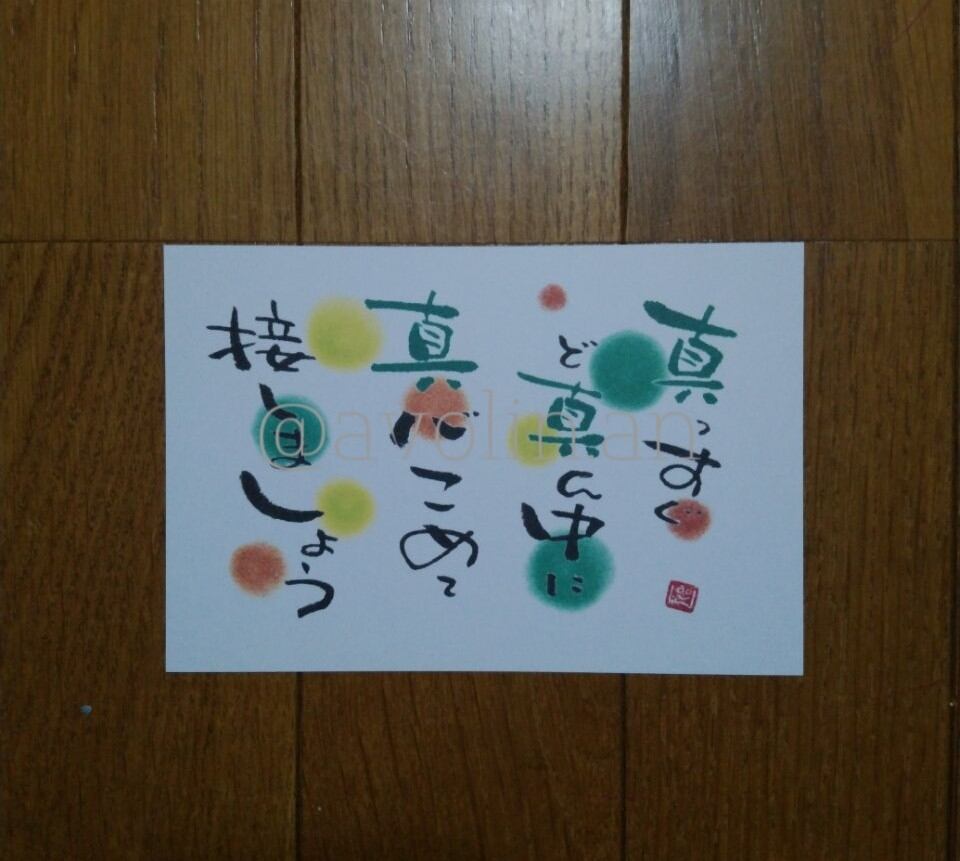 真っすぐ
ど真ん中に
真心こめて
接しましょう
@ayoliman